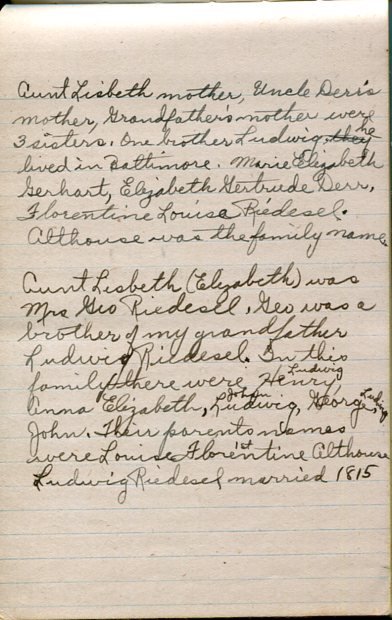 Aunt Lisbeth mother, Uncle Derr's
mother, Grandfather's mother were
3 sisters. One brother Ludwig, they he
lived in Baltimore. Marie Elizabeth
Gerhart, Elizabeth Gertrude Derr,
Florentine Louisa Riedesel.
Althouse was the family name.
Aunt Lisbeth (Elizabeth) was
Mrs Geo Riedesel, Geo was a
brother of my grandfather
Ludwig Riedesel. In this
family there were Henry, Ludwig
Anna Elizabeth, Ludwig, John George, Ludwig
John. Their parents names
were Louise Florentine Althouse
Ludwig 1st Riedesel married 1815